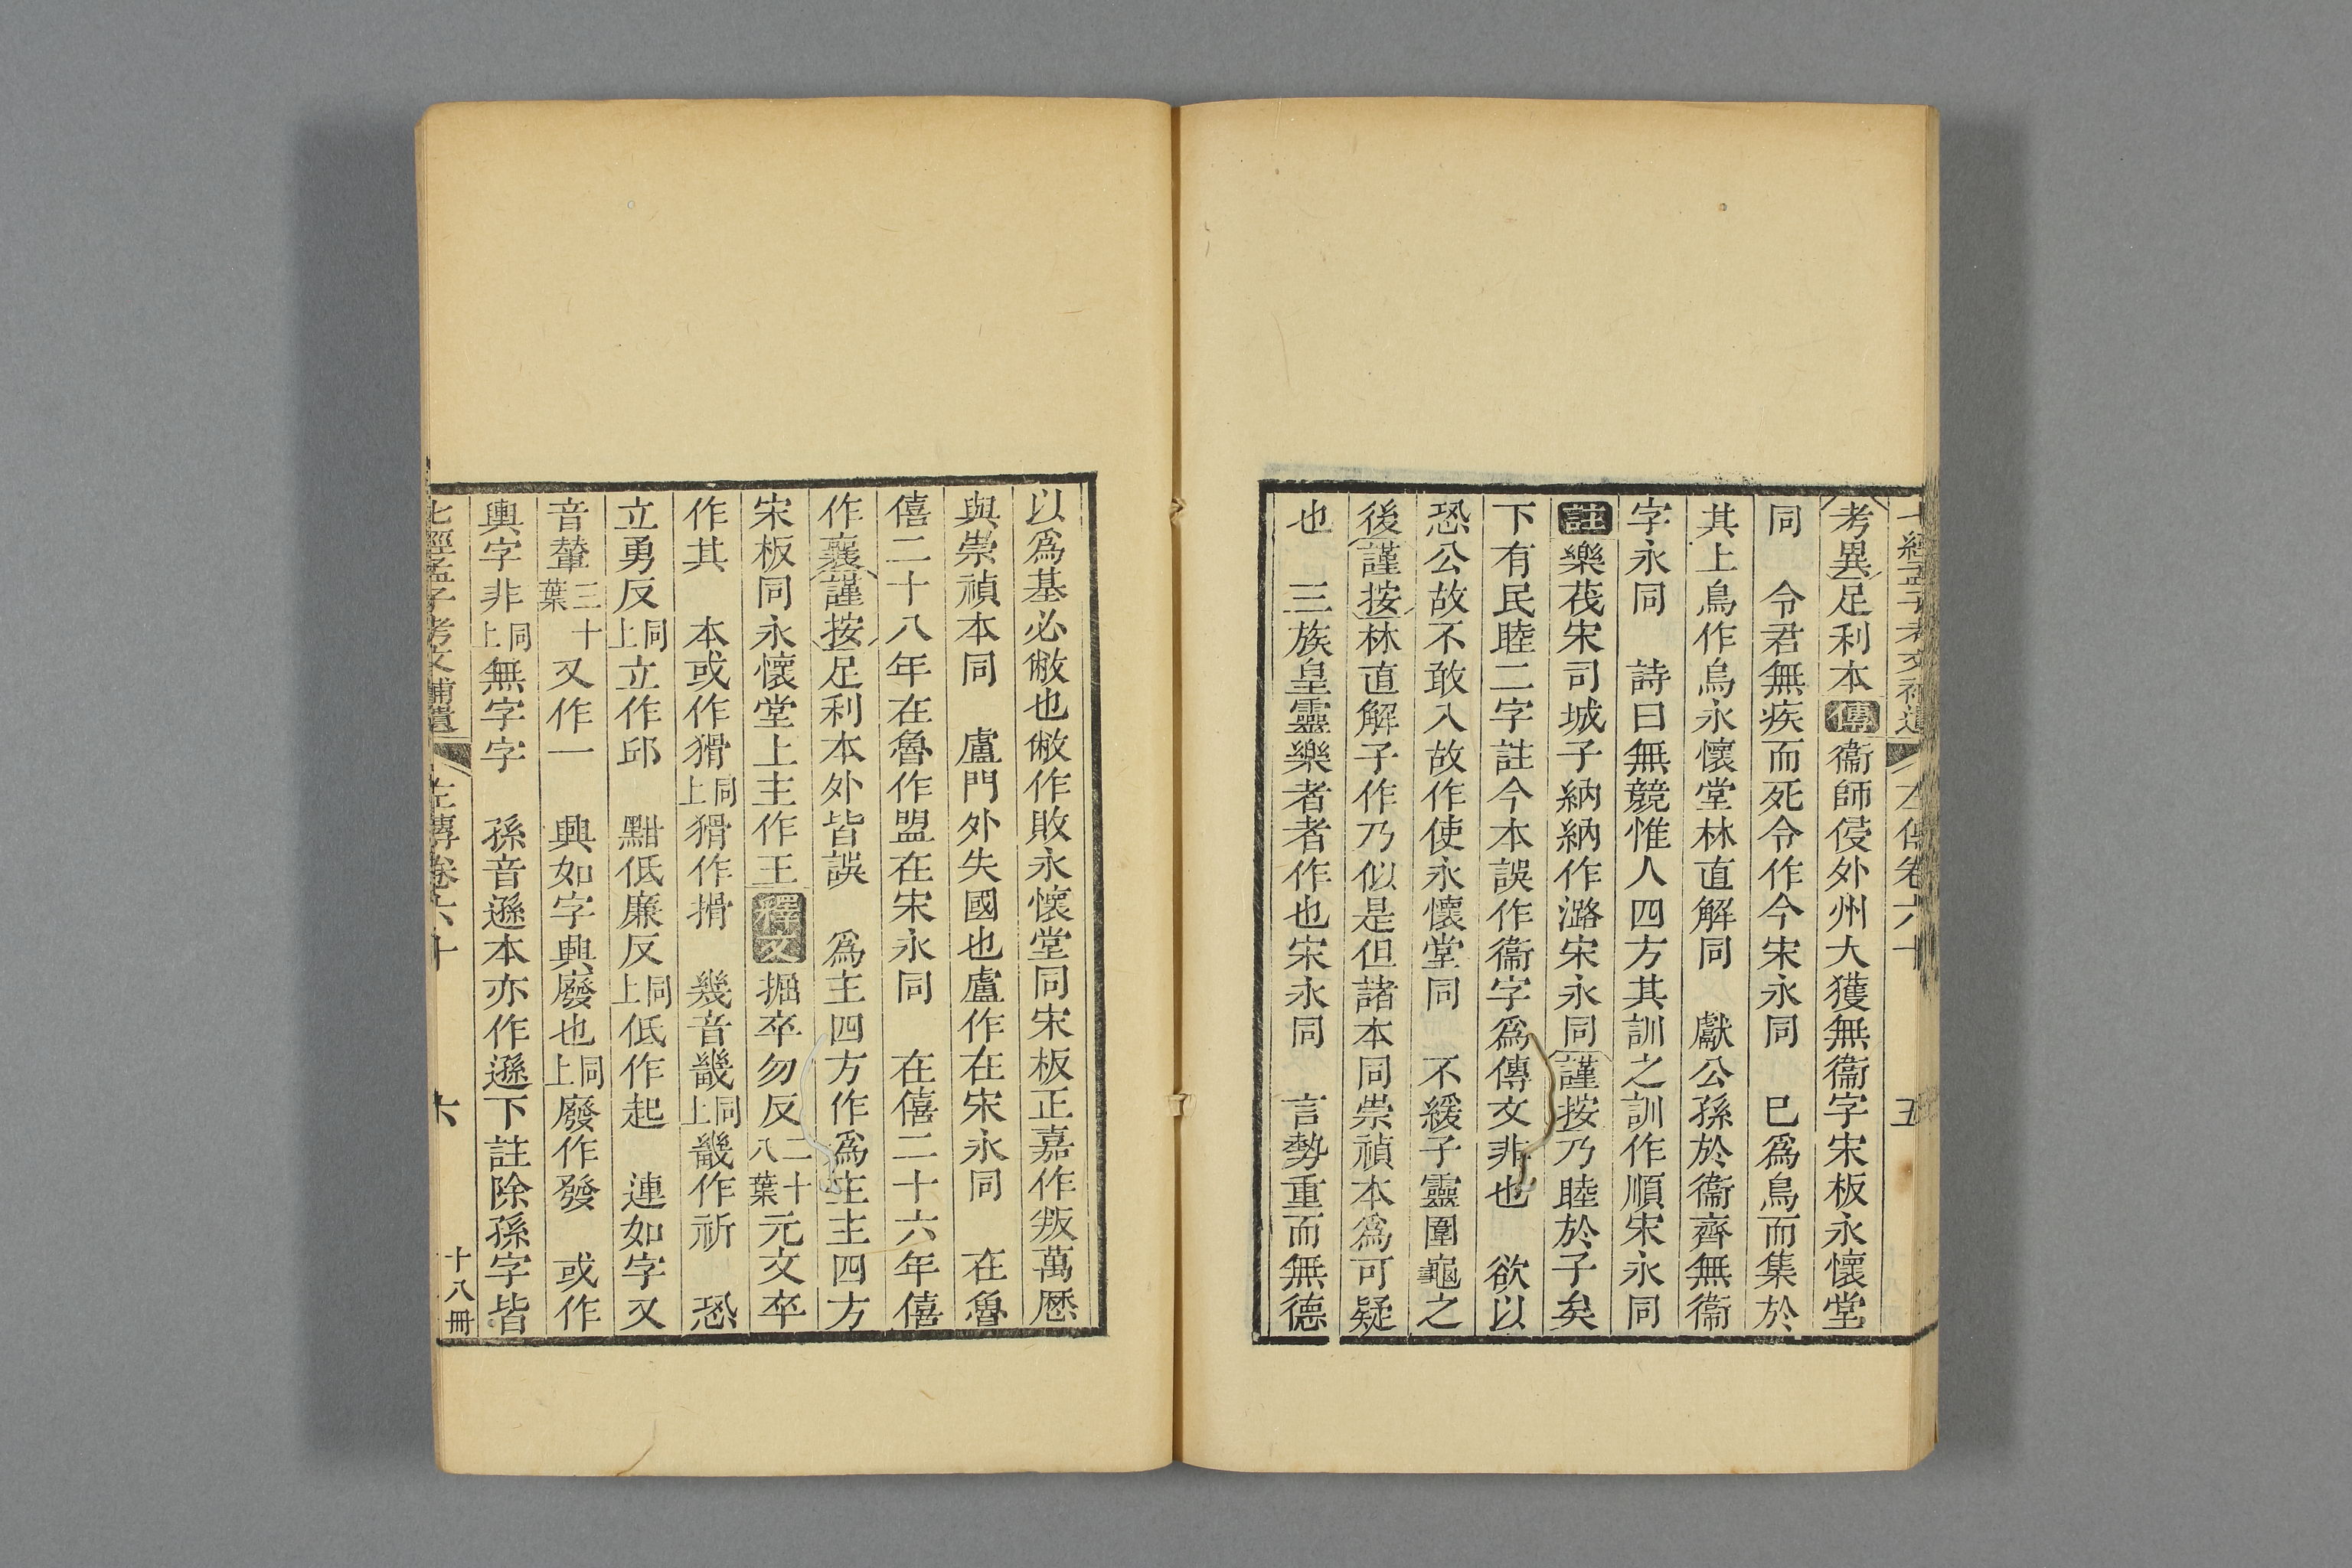 七經孟子考文補遺 左傳卷六十 五
考異足利本傳衞師侵外州大獲無衞字宋板永懷堂
同 令君無疾而死令作今宋永同 巳爲鳥而集於
其上鳥作烏永懷堂林直解同 獻公孫於衞齊無衞
字永同 詩曰無競惟人四方其訓之訓作順宋永同
註樂茷宋司城子納納作潞宋永同謹按乃睦於子矣
下有民睦二字註今本誤作衞字爲傳文非也 欲以
恐公故不敢入故作使永懷堂同 不緩子靈圍龜之
後謹按林直解子作乃似是但諸本同崇禎本爲可疑
也 三族皇靈樂者者作也宋永同 言勢重而無德
以爲基必敝也敝作敗永懷堂同宋板正嘉作叛萬曆
與崇禎本同 盧門外失國也盧作在宋永同 在魯
僖二十八年在魯作盟在宋永同 在僖二十六年僖
作襄謹按足利本外皆誤 爲主四方作爲主主四方
宋板同永懷堂上主作王釋文掘卒勿反二十八葉元文卒
作其 本或作猾同上猾作搰 幾音畿同上畿作祈 恐
立勇反同上立作邱 黚低廉反同上低作起 連如字又
音輦三十葉又作一 興如字興廢也同上廢作發 或作
輿字非同上無字字 孫音遜本亦作遜下註除孫字皆
七經孟子考文補遺 左傳卷六十 六 十八冊